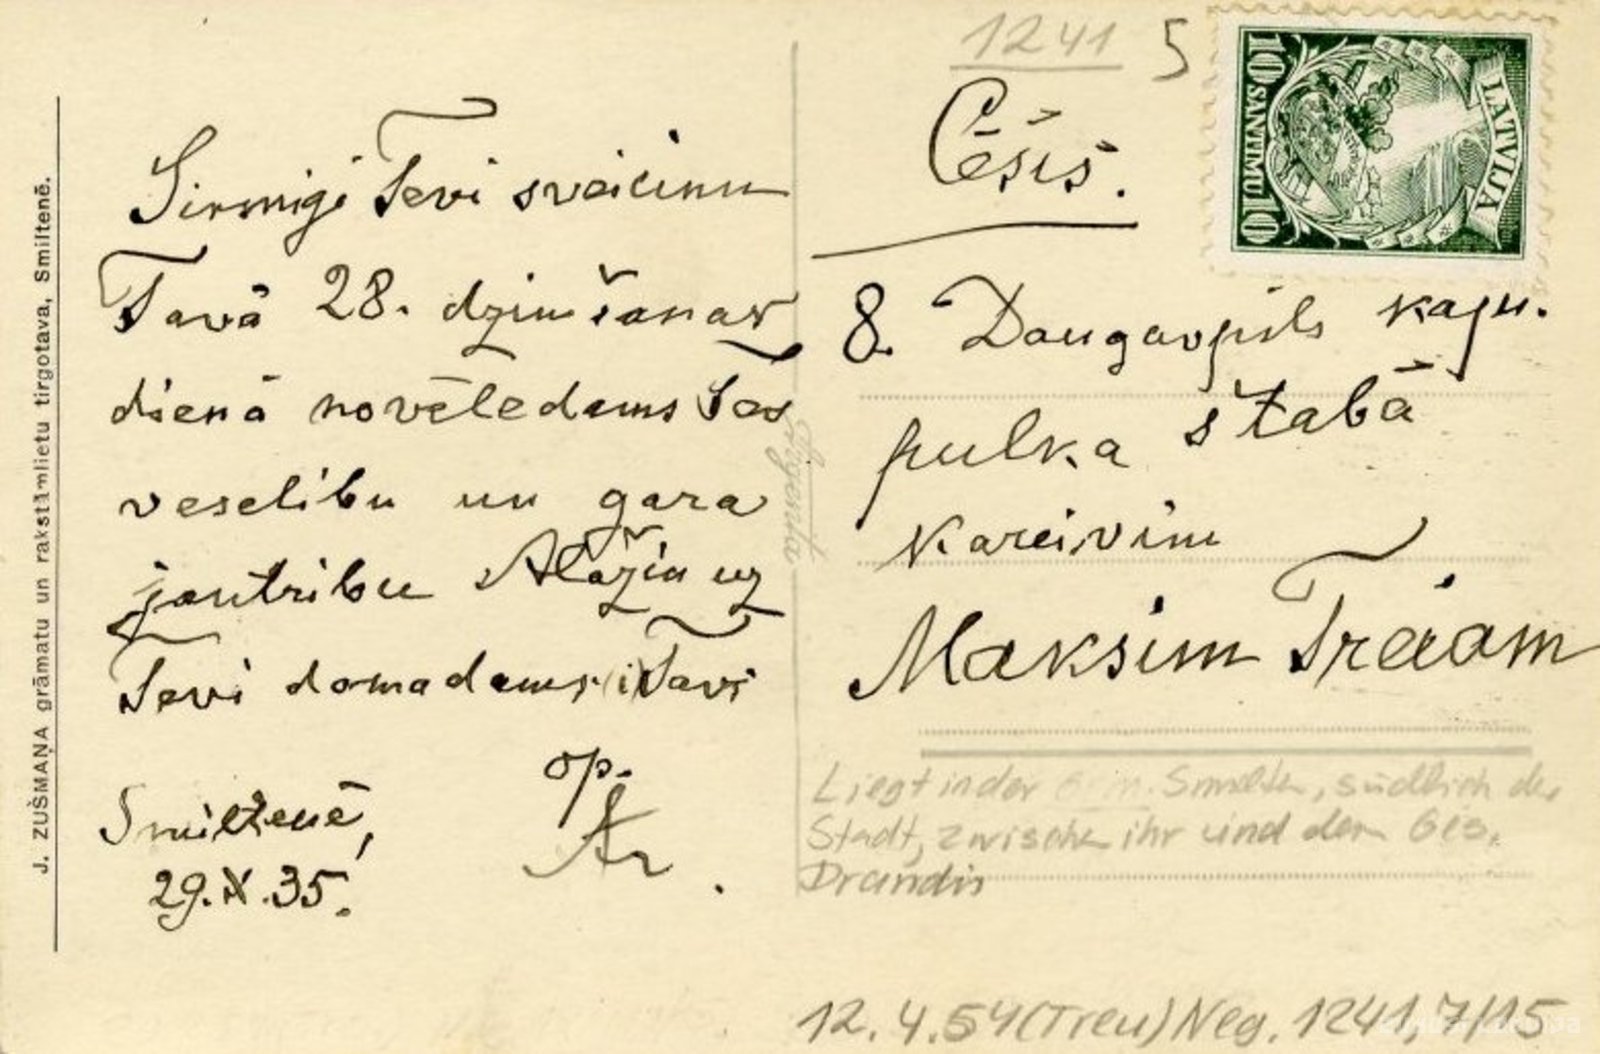 J. ZUŠMAŅA grāmatu un rakstāmlietu tirgotava, Smiltenē.
Sirmnigi Tevi sveicinu
Tavā 28. dzimšanas
dienā novēledams Tev
veselibu un gara
jautribu
uz
Tevi domadams Tavs
op.
Smiltenē,
29.X.35.
1241 5
Cēsis.
LATVIJA
10 SANTIMU 10
8. Daugavpils kaju.
pulka stabā
Kareivim
Maksim
Liegt in der Gem. Smilten, südlich der
Stadt, zwischen ihr und dem Ges.
Drandis
12.4.54 (Treu) Neg. 1241, 7/15